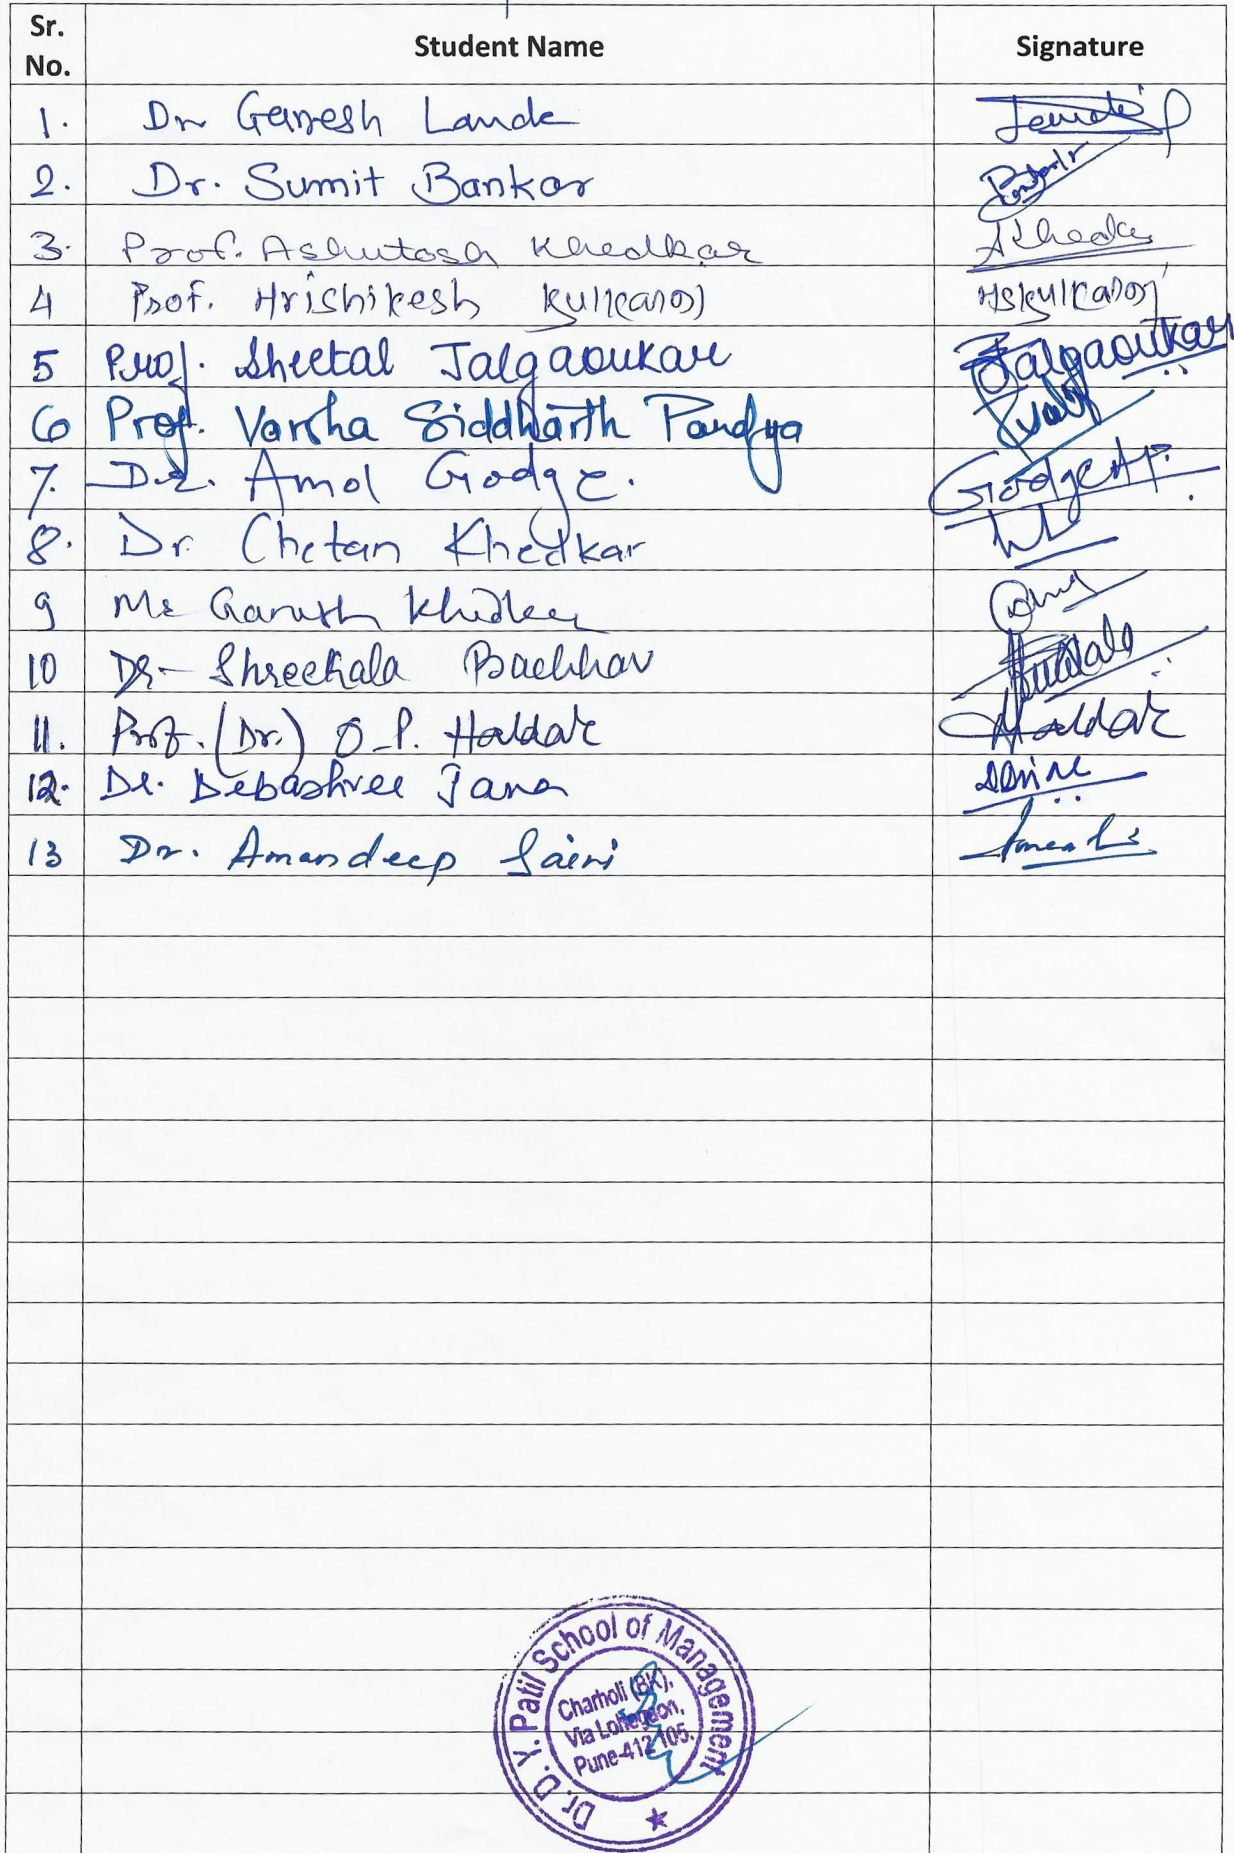 Sr. No. Student Name Signature
1. Dr Ganesh Lande
2. Dr. Sumit Bankar
3. Prof. Ashutosh Khedkar AKhedkar
4 Prof. Hrishikesh Kulkarni HSKulkarni
5 Prof. Sheetal Jalgaoukar Jalgaoukar
6 Prof. Varsha Siddharth Pandya
7. Dr. Amol Godge. GodgeAP.
8. Dr. Chetan Khedkar
9 Mr Ganesh
10 Dr- Shreekala Bachhav
11. Prof. (Dr.) O.P. Haldar Haldar
12. Dr. Debashree Jana
13 Dr. Amandeep Saini
Dr. D. Y. Patil School of Management
Charholi (BK),
Via Lohegaon,
Pune-412105.